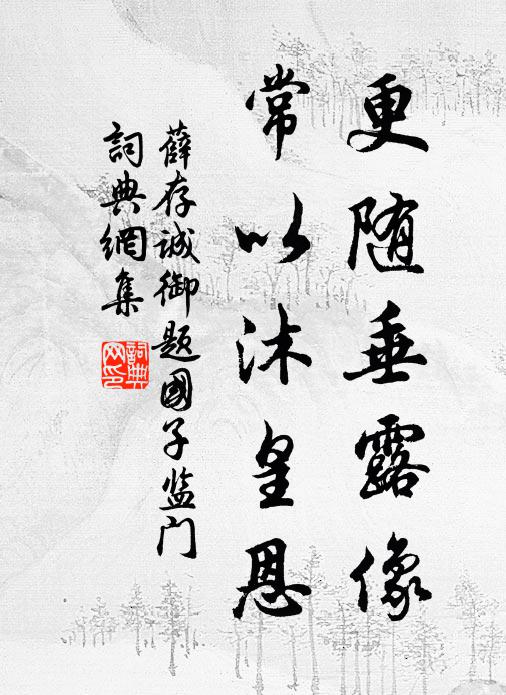 更随垂露像
常以沐皇恩
薛存诚御题國子监门
詞典網集
詞典
网印